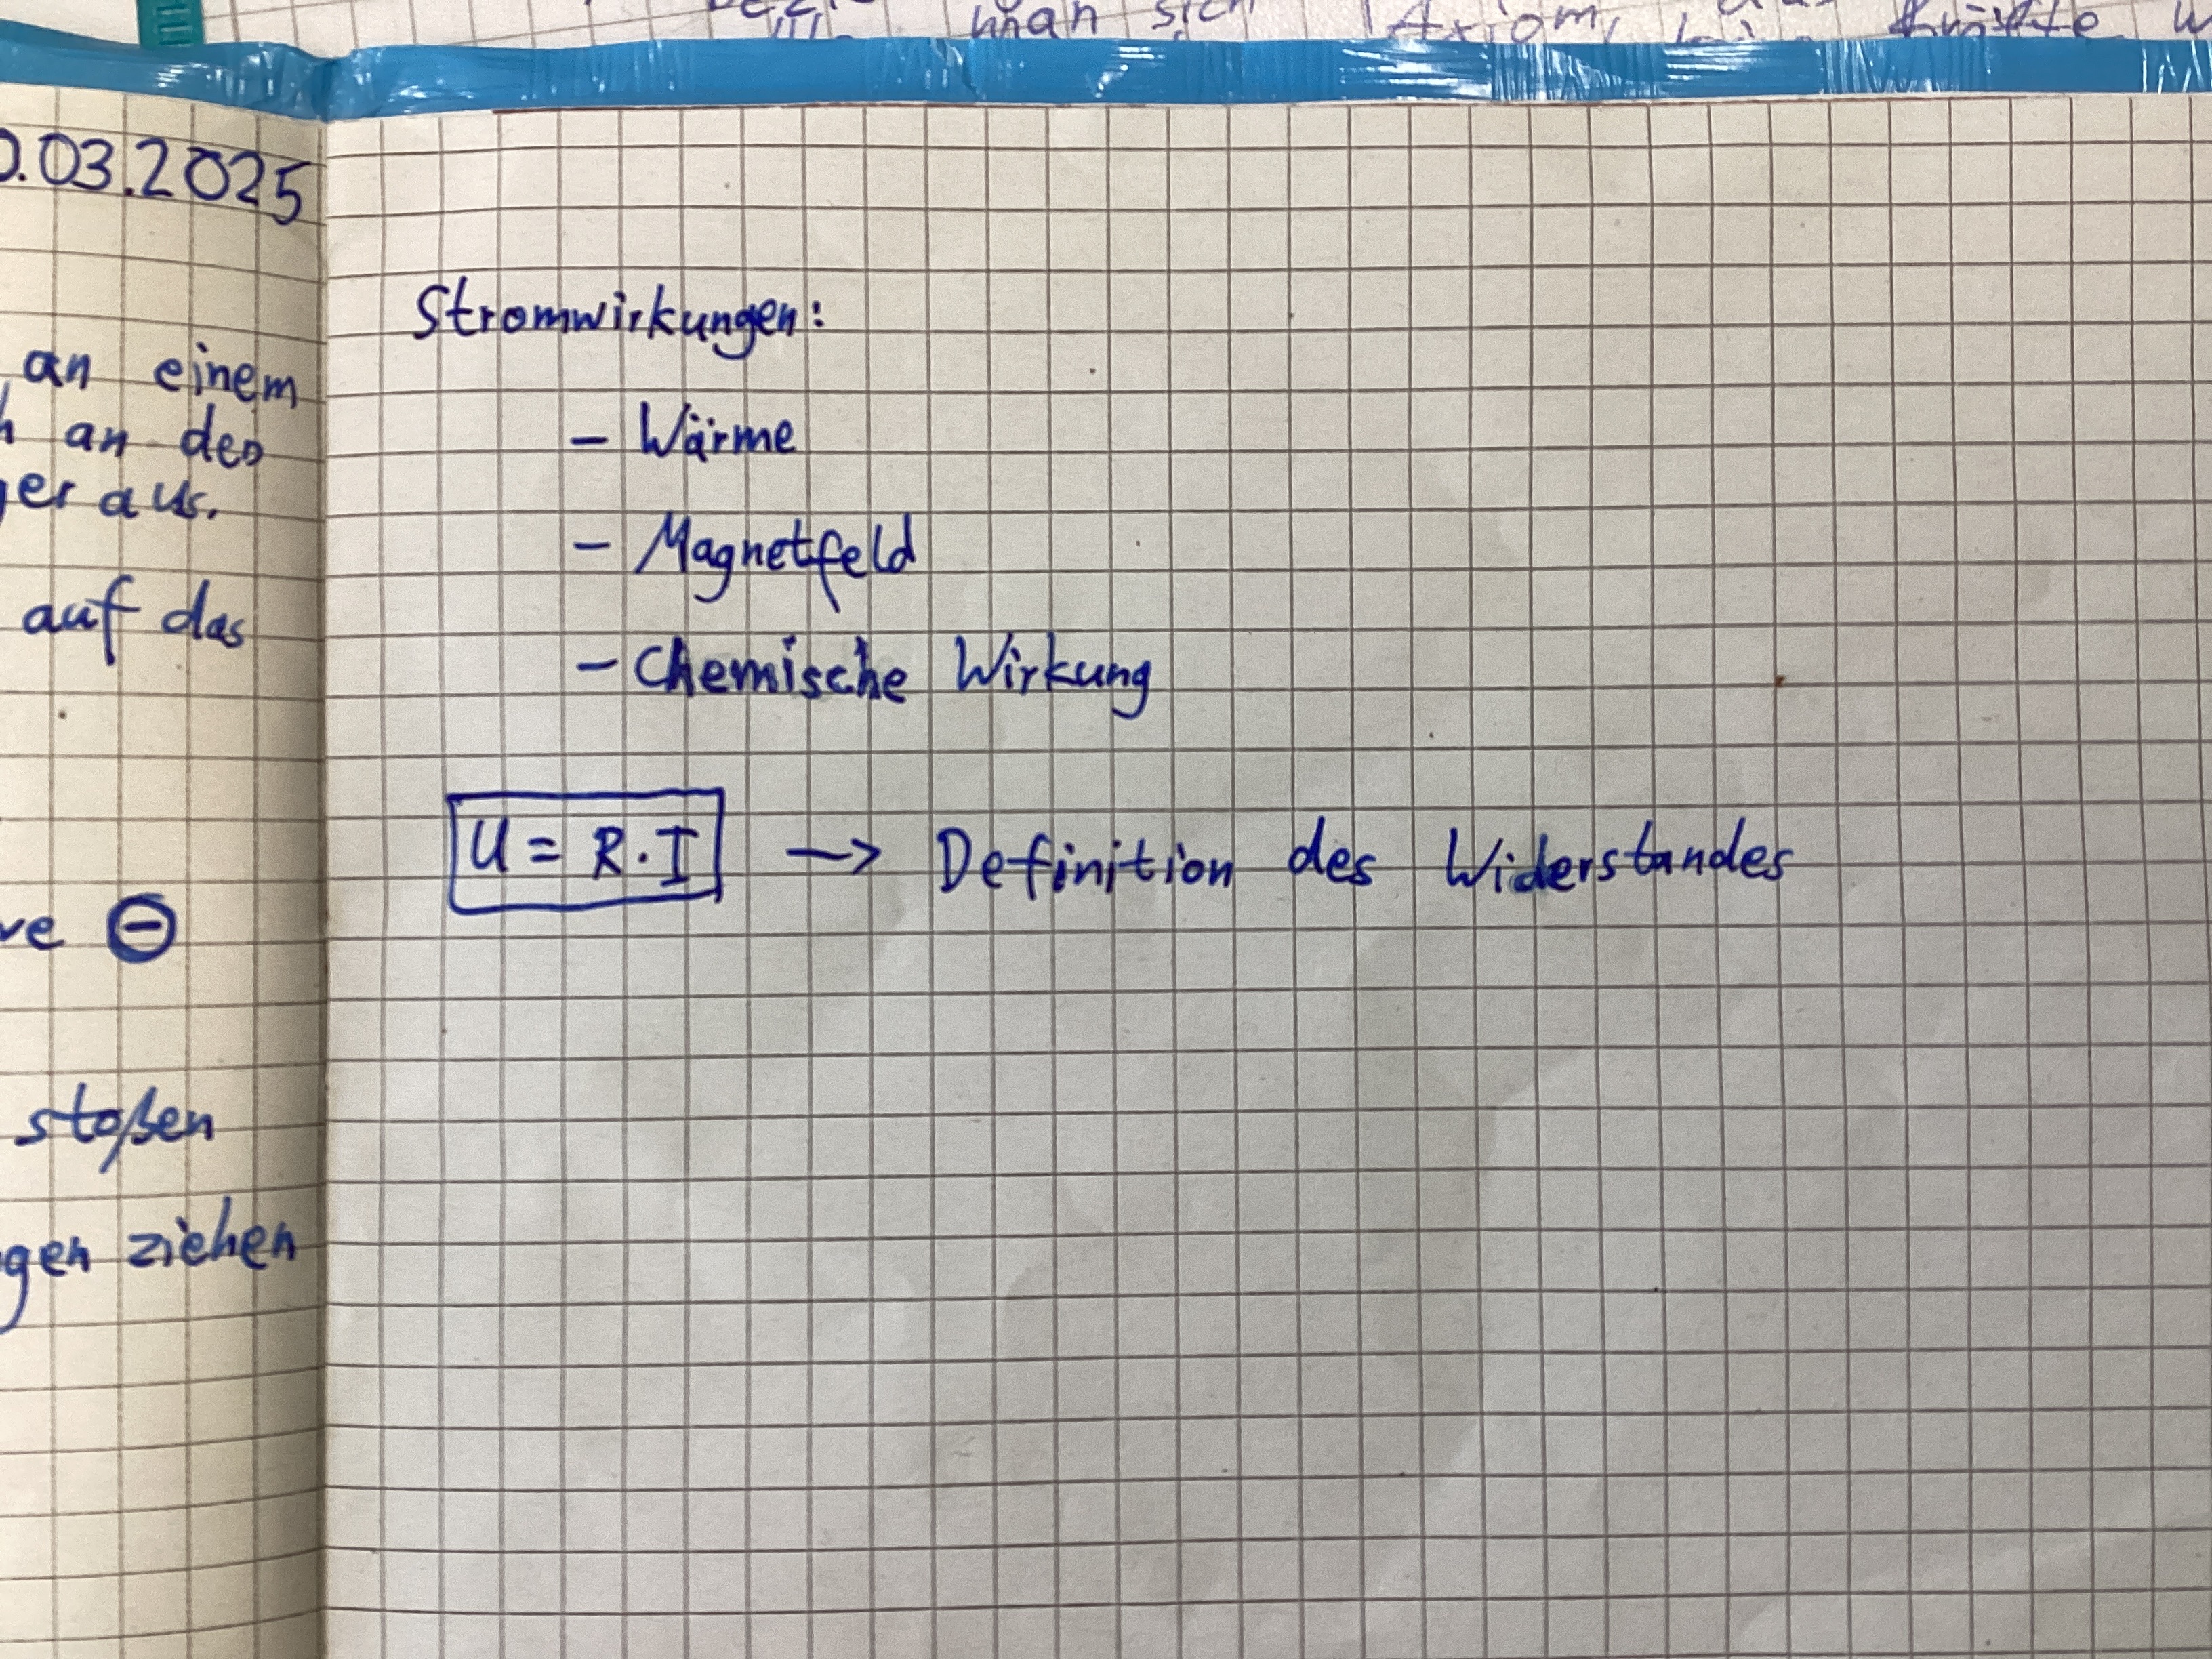 man sich Axiom,
.03.2025
an einem
an den
aus.
auf das
⊖
stoßen
ziehen
Stromwirkungen:
– Wärme
– Magnetfeld
– Chemische Wirkung
U = R · I → Definition des Widerstandes